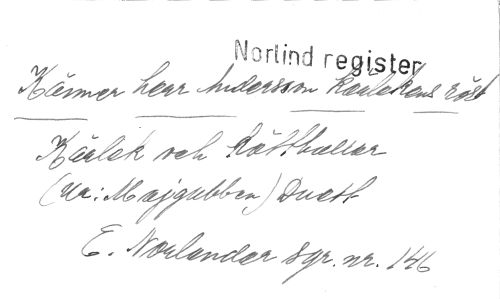 Norlind register
Känner herr Andersson kärlekens röst
Kärlek och Köttbullar
(ur: Majgubben) Duett
E. Norlander sgr. nr. 146